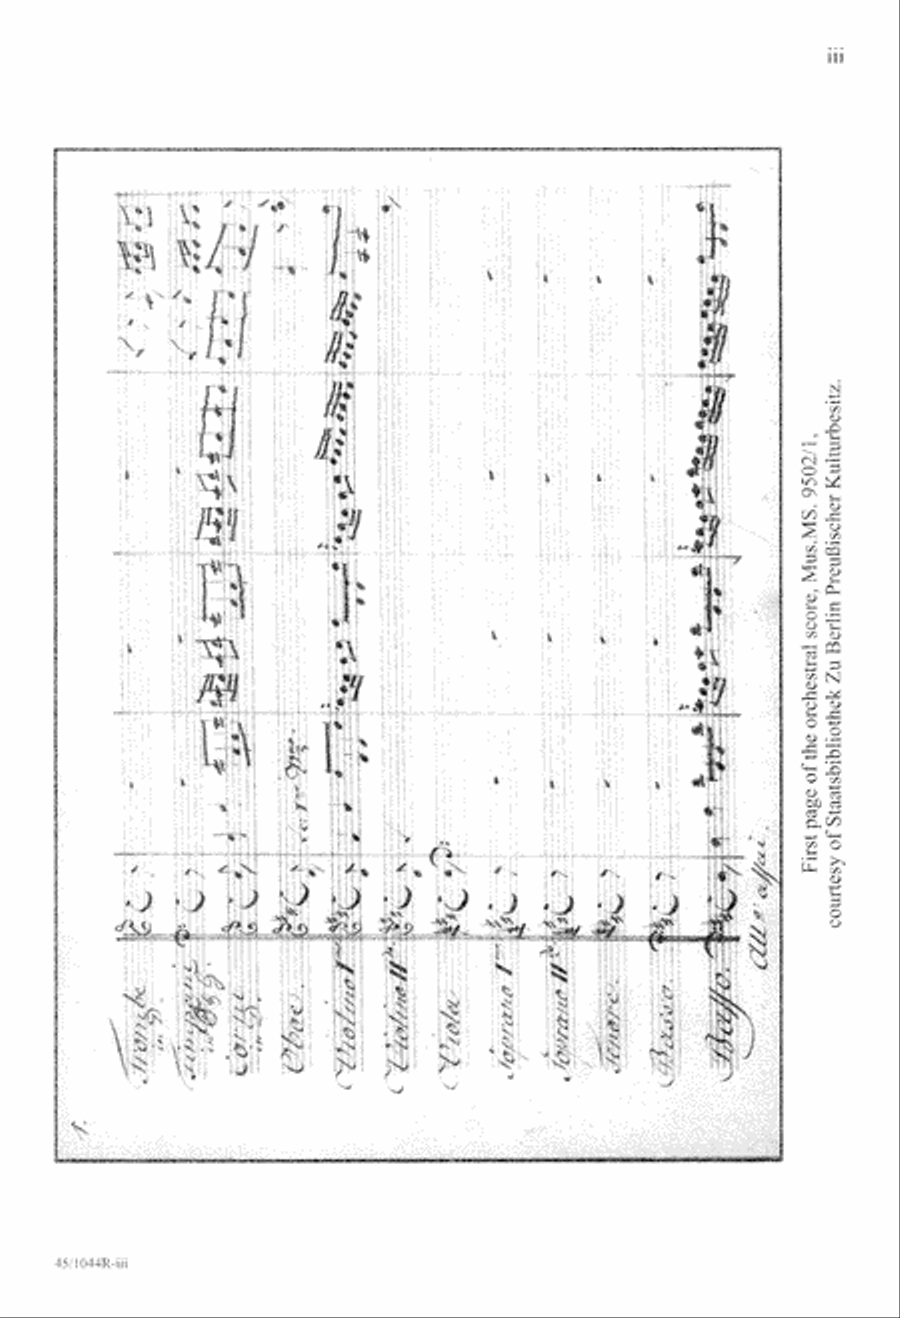 iii
1.
Trombe
in g.
Timpani
in g.
Corni
in g.
Oboe.
Violino I
Violino II
Viola
Soprano I
Soprano II
Tenore.
Basso.
Basso.
All° assai.
First page of the orchestral score, Mus.MS. 9502/1,
courtesy of Staatsbibliothek Zu Berlin Preußischer Kulturbesitz.
45/1044R-iii